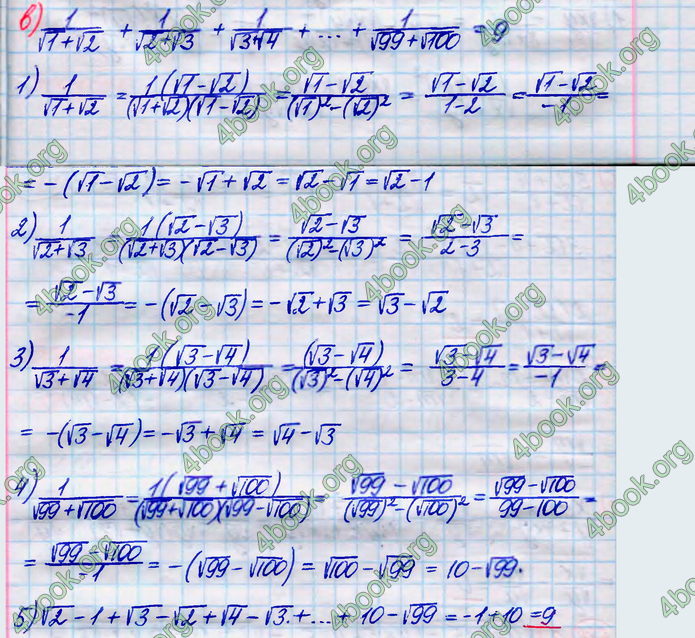 в) 1/(√1+√2) + 1/(√2+√3) + 1/(√3+√4) + ... + 1/(√99+√100) = 9
1) 1/(√1+√2) = 1(√1-√2)/((√1+√2)(√1-√2)) = (√1-√2)/((√1)²-(√2)²) = (√1-√2)/(1-2) = (√1-√2)/(-1) =
= -(√1-√2) = -√1+√2 = √2-√1 = √2-1
2) 1/(√2+√3) = 1(√2-√3)/((√2+√3)(√2-√3)) = (√2-√3)/((√2)²-(√3)²) = (√2-√3)/(2-3) =
= (√2-√3)/(-1) = -(√2-√3) = -√2+√3 = √3-√2
3) 1/(√3+√4) = 1(√3-√4)/((√3+√4)(√3-√4)) = (√3-√4)/((√3)²-(√4)²) = (√3-√4)/(3-4) = (√3-√4)/(-1) =
= -(√3-√4) = -√3+√4 = √4-√3
4) 1/(√99+√100) = 1(√99+√100)/((√99+√100)(√99-√100)) = (√99-√100)/((√99)²-(√100)²) = (√99-√100)/(99-100) =
= (√99-√100)/1 = -(√99-√100) = √100-√99 = 10-√99.
5) √2-1+√3-√2+√4-√3.+...+10-√99 = -1+10 = 9
4book.org